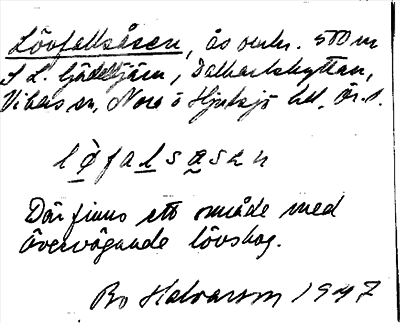 Lövfallsåsen, ås omkr. 500 m
S L. Gäddtjärn, Dalkarlshyttan,
Vikers sn, Nora o Hjulsjö hd, Ör. l.
lòfalsåsen
Där finns ett område med
övervägande lövskog.
Bo Halvarson 1947